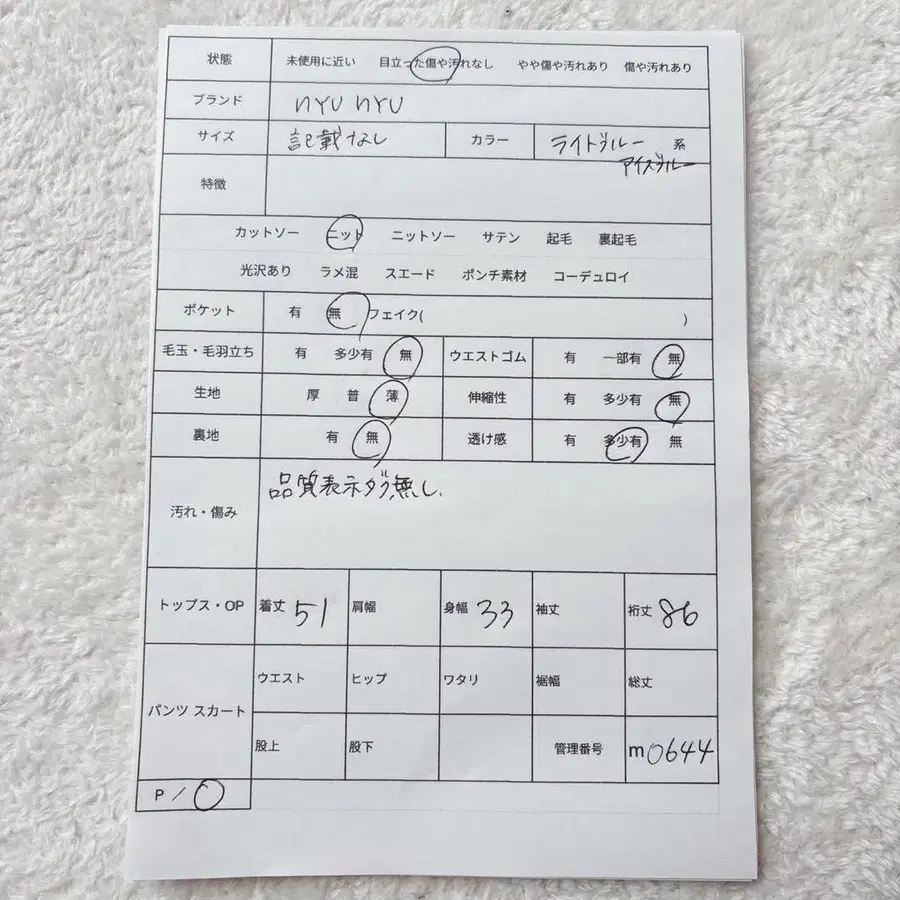 状態 未使用に近い 目立った傷や汚れなし やや傷や汚れあり 傷や汚れあり
ブランド NYU NYU
サイズ 記載なし カラー ライトブルー 系
アイスブルー
特徴
カットソー ニット ニットソー サテン 起毛 裏起毛
光沢あり ラメ混 スエード ポンチ素材 コーデュロイ
ポケット 有 無 フェイク( )
毛玉・毛羽立ち 有 多少有 無 ウエストゴム 有 一部有 無
生地 厚 普 薄 伸縮性 有 多少有 無
裏地 有 無 透け感 有 多少有 無
汚れ・傷み 品質表示タグ無し.
トップス・OP 着丈 51 肩幅 身幅 33 袖丈 裄丈 86
パンツ スカート ウエスト ヒップ ワタリ 裾幅 総丈
股上 股下 管理番号 m0644
P / O